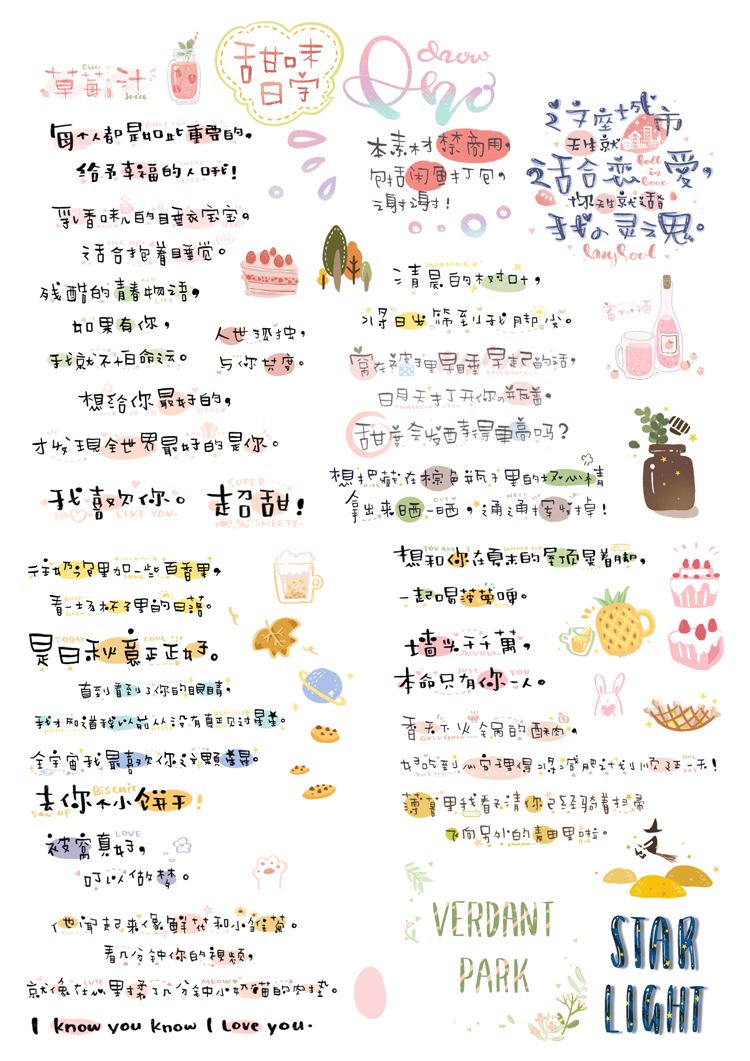 草莓汁
Juice
甜味
日常
draw
每个人都是如此重要的,
给予幸福的人哦!
乳香味儿的睡衣宝宝。
适合抱着睡觉。
残酷的青春物语,
如果有你,
我就不怕命运。
人世孤独,
与你共度。
想给你最好的,
才发现全世界最好的是你。
我喜欢你。
LIKE YOU
SUPER
超甜!
SWEETY
本素材禁商用,
包括闲鱼打包,
谢谢!
这座城市
天生就
适合恋愛,
你天生就適
我の灵魂。
lazySoul
MORNING
清晨的树叶,
将日出筛到我脚尖。
窝在被子里早睡早起的话,
日月天打开你の瓶盖,
甜度会发酵得更高吗?
想把藏在棕色瓶子里的坏心情
拿出来晒一晒,通通挥发掉!
往奶泡里加一些百香果,
看一场杯子里的日落。
TODAY
COOL
是日秋意正正好。
直到看到了你的眼睛,
我才知道我以前从没有真正见过星星。
全宇宙我最喜欢你这颗星星。
BISCUIT
去你个小饼干!
SON OF
LOVE
被窝真好,
可以做梦。
他闻起来像鲜花和小雏菊。
看几分钟你的视频,
CUTE
MEOW
就像在心里揉了几分钟小奶猫的肉垫。
I know you know I love you.
YOU AND I
想和你在夏末的屋顶晃着脚,
一起喝菠萝啤。
墙头千千萬,
JUST YOU
本命只有你一人。
香天下火锅的酥肉,
好吃到心安理得将减肥计划顺延一天!
薄暮里我看不清你已经骑着扫帚
飞向另外的麦田里啦。
VERDANT
PARK
STAR
LIGHT